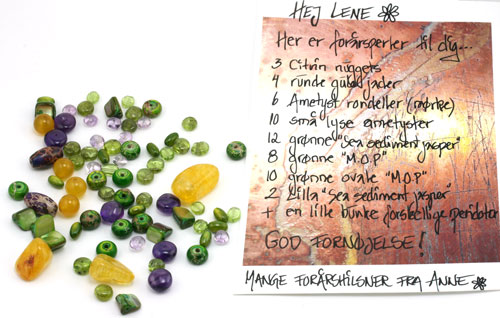 HEJ LENE
Her er forårsperler til dig...
3 Citrin nuggets
4 runde gule jader
6 Ametyst rondeller (mørke)
10 små lyse ametyster
12 grønne "Sea sediment jasper"
8 grønne "M.O.P"
10 grønne ovale "M.O.P"
2 lilla "Sea sediment jasper"
+ en lille bunke forskellige peridoter
GOD FORNØJELSE!
MANGE FORÅRSHILSNER FRA ANNE